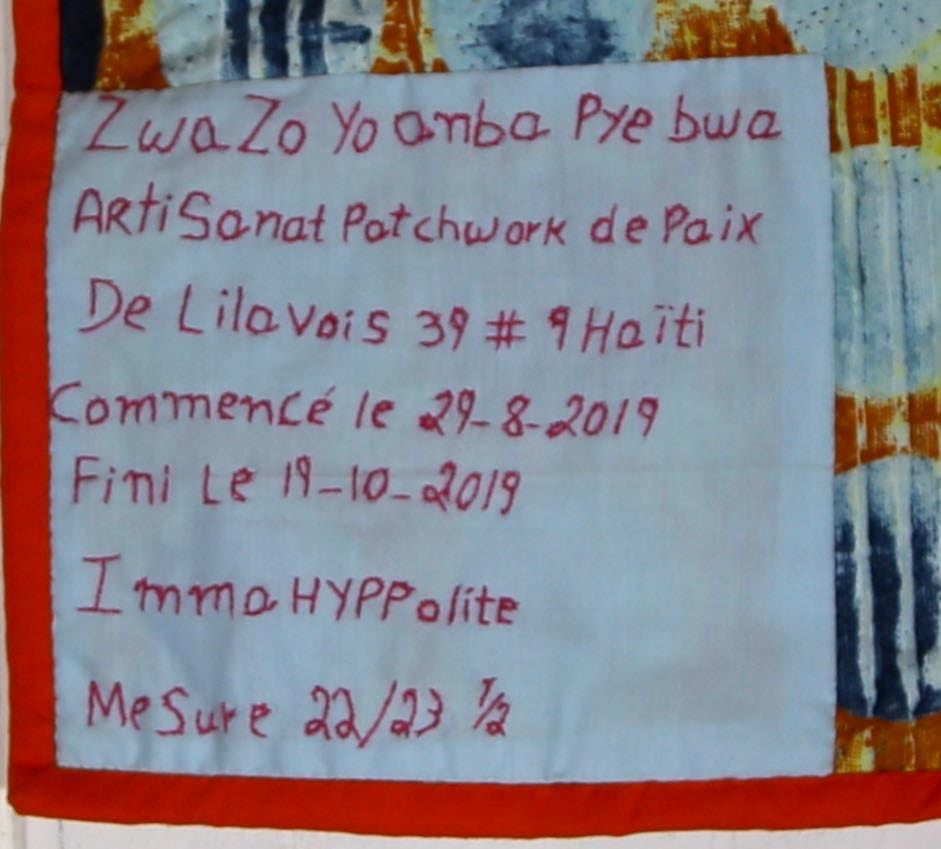 ZwaZo Yo anba Pye bwa
ARtiSanat Patchwork de Paix
De Lilavois 39 # 9 Haïti
Commencé le 29-8-2019
Fini Le 19-10-2019
Imma HYPPolite
MeSure 22/23 1/2